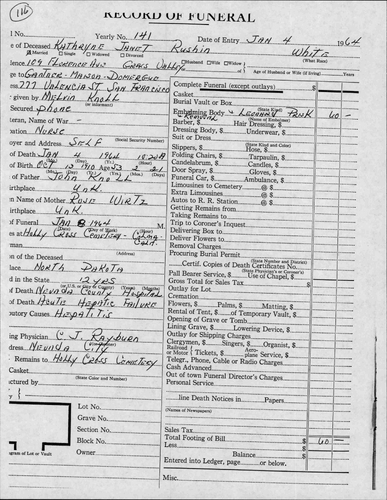 116
RECORD OF FUNERAL
l No. Yearly No. 141 Date of Entry JAN 4 1964
e of Deceased KATHRYNE JANET Rushin White
Married Single Widowed Divorced Husband Wife Widow (What Race)
dence 109 FLORENCE AVE GRASS VALLEY of Age of Husband or Wife (if living) Years
ge to GANTNER- MAISON- DOMERGUE
ess 777 VALENCIA ST SAN FRANCISCO
given by MELVIN KNOLL
secured PHONE
teran, Name of War -
ation NURSE (Social Security Number)
oyer and Address SELF
of Death JAN 4 1964
of Birth OCT
of Father JOHN KNOLL
irthplace UNK.
n Name of Mother ROSE WIRTZ
irthplace UNK.
of Funeral JAN 8 1964 M.
es at HOLLY CROSS CEMETERY - COLMA- CALIF.
on of the Deceased (Address)
place NORTH DAKOTA
d in the State 12 YRS
(or U.S., or City or County) (Years) (Months)
of Death NEVADA COUNTY HOSPITAL
of Death ACUTE HEPATIC FAILURE
utory Causes HEPATITIS
ing Physician C J. RAYBURN
dress NEVADA CITY
Remains to HOLLY CROSS CEMETERY
Casket
(State Color and Number)
ctured by
Lot No.
Grave No.
Section No.
Block No.
Owner
agram of Lot or Vault
Complete Funeral (except outlays) $
Casket (State Kind)
Burial Vault or Box
Embalming Body (Name of Embalmer) 60 -
Barber, $ Hair Dressing, $
Dressing Body, $ Underwear, $
Suit or Dress (State Kind and Color)
Slippers, $ Hose, $
Folding Chairs, $ Tarpaulin, $
Candelabrum, $ Candles, $
Door Spray, $ Gloves, $
Funeral Car, $ Ambulance, $
Limousines to Cemetery @ $
Extra Limousines @ $
Autos to R. R. Station @ $
Getting Remains from
Taking Remains to
Trip to Coroner's Inquest
Delivering Box to
Deliver Flowers to
Removal Charges
Procuring Burial Permit (State Number and District)
Certif. Copies of Death Certificates No.
(State Physician's or Coroner's)
Pall Bearer Service, $ Use of Chapel, $
Gross Total for Sales Tax $
Outlay for Lot
Cremation
Flowers, $ Palms, $ Matting, $
Rental of Tent, $ of Temporary Vault, $
Opening of Grave or Tomb
Lining Grave, $ Lowering Device, $
Outlay for Shipping Charges
Clergymen, $ Singers, $ Organist, $
Railroad or Motor Tickets, $ Aeroplane Service, $
Telegr., Phone, Cable or Radio Charges
Cash Advanced
Out of town Funeral Director's Charges
Personal Service
line Death Notices in Papers
(Names of Newspapers)
Sales Tax
Total Footing of Bill $ 60 -
Less
Balance $
Entered into Ledger, page or below.
Misc.